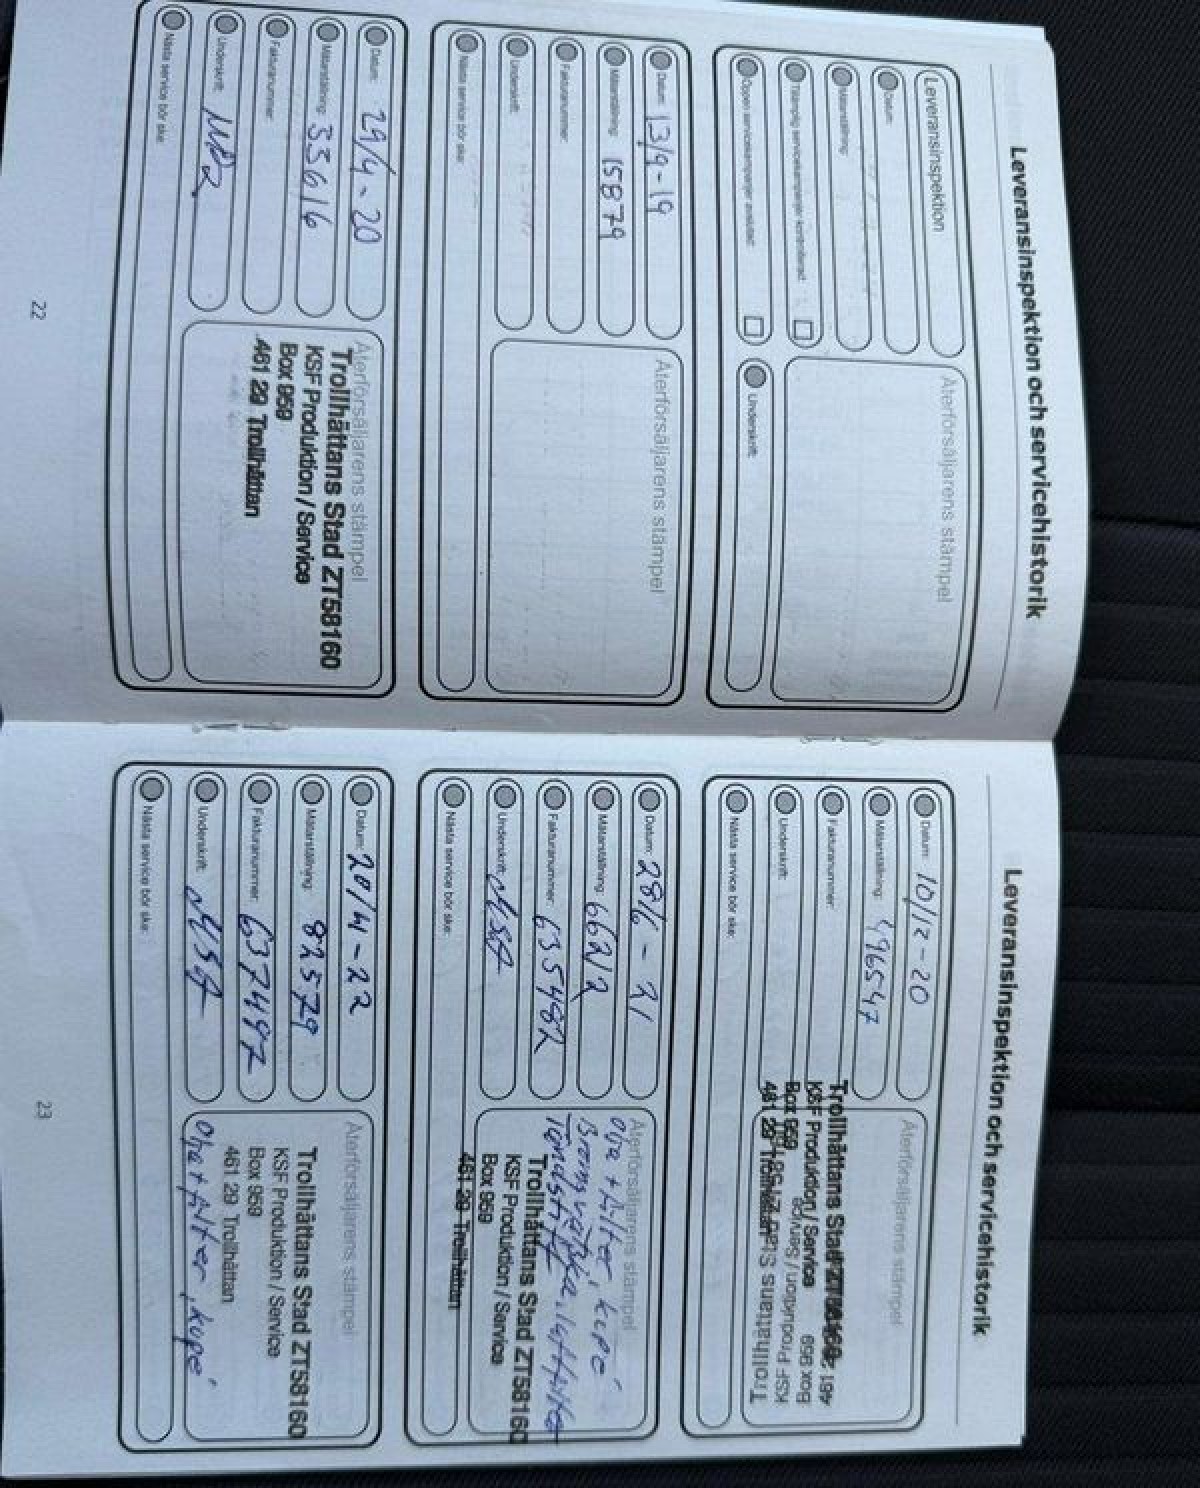 Leveransinspektion och servicehistorik
Leveransinspektion
Datum:
Mätarställning:
Tillämplig servicekampanjer kontrollerad:
Öppen servicekampanjer avslutad:
Återförsäljarens stämpel
Underskrift:
Datum: 13/9-19
Mätarställning: 15879
Fakturanummer:
Underskrift:
Nästa service bör ske:
Återförsäljarens stämpel
Datum: 29/4-20
Mätarställning: 33616
Fakturanummer:
Underskrift:
Nästa service bör ske:
Återförsäljarens stämpel
Trollhättans Stad ZT58160
KSF Produktion / Service
Box 959
461 29 Trollhättan
22
Leveransinspektion och servicehistorik
Datum: 10/12-20
Mätarställning: 496547
Fakturanummer:
Underskrift:
Nästa service bör ske:
Återförsäljarens stämpel
Trollhättans Stad ZT58160
KSF Produktion / Service
Box 959
461 29 Trollhättan
Trollhättans Stad ZT58160
KSF Produktion / Service
Box 959
461 29 Trollhättan
Datum: 28/6-21
Mätarställning: 66212
Fakturanummer: 635482
Underskrift: MSA
Nästa service bör ske:
Återförsäljarens stämpel
Olja + filter, kupé
Bromsvätska, luftfilter
Trollhättans Stad ZT58160
KSF Produktion / Service
Box 959
461 29 Trollhättan
Datum: 20/4-22
Mätarställning: 82579
Fakturanummer: 637497
Underskrift: MSA
Nästa service bör ske:
Återförsäljarens stämpel
Trollhättans Stad ZT58160
KSF Produktion / Service
Box 959
461 29 Trollhättan
Olja + filter, kupé
23